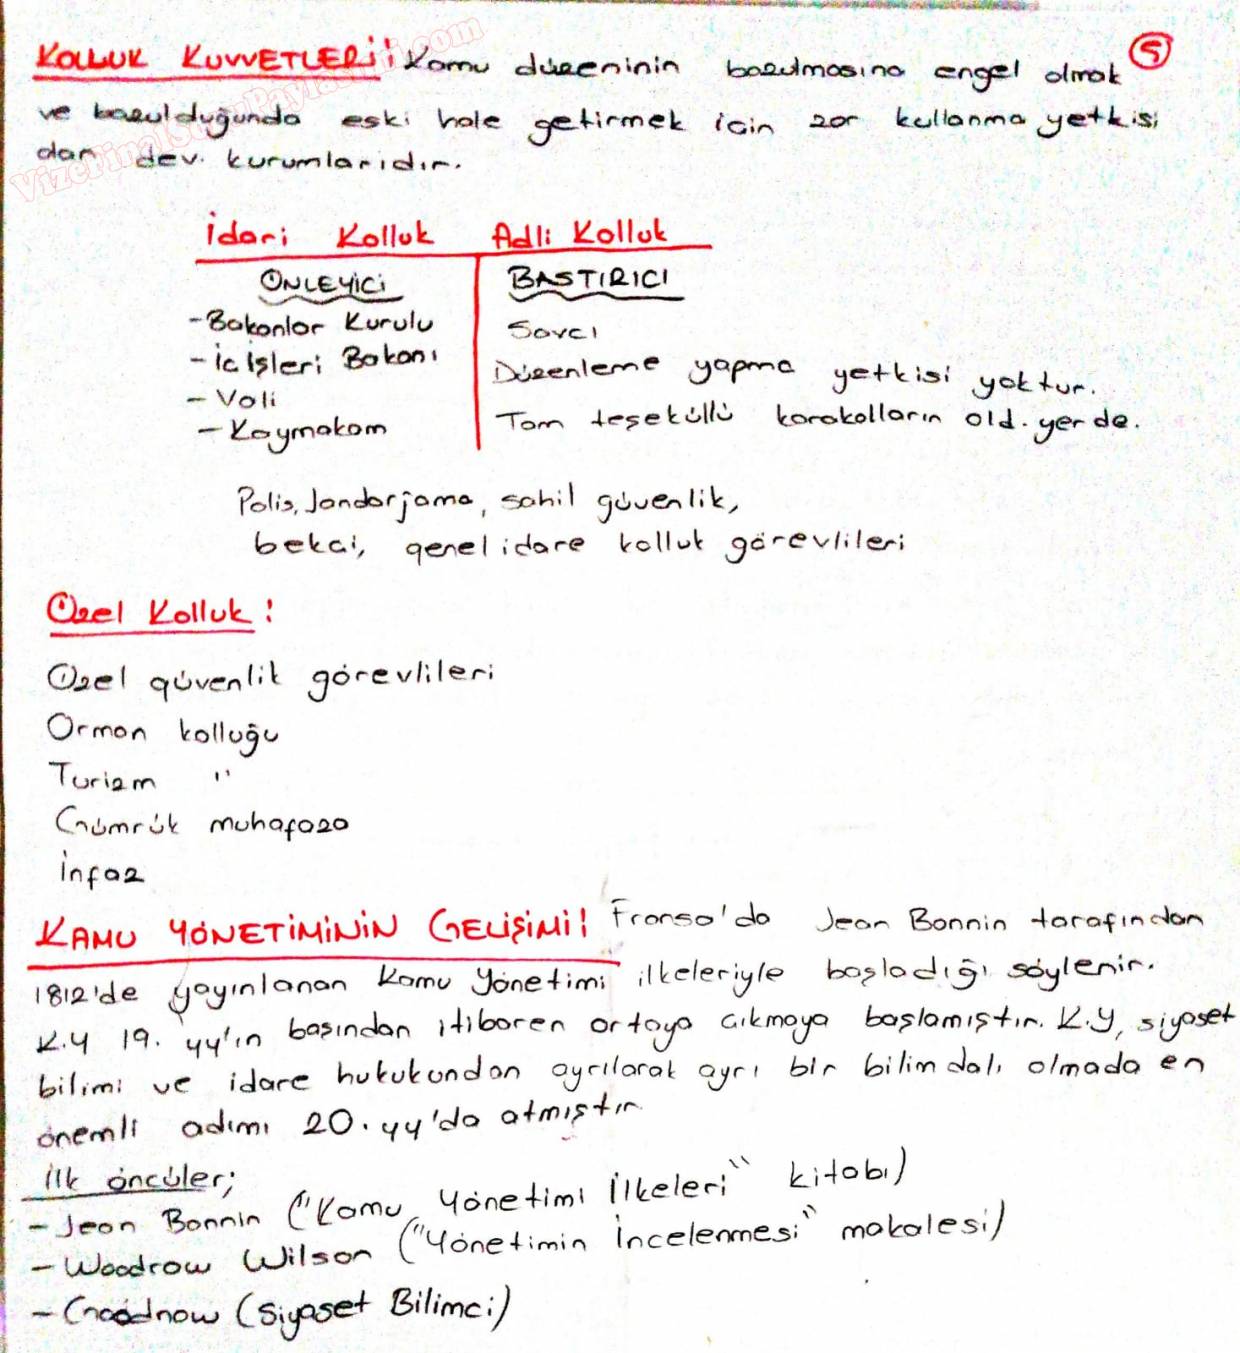 KOLLUK KUVVETLERİ! Kamu düzeninin bozulmasına engel olmak
5
ve bozulduğunda eski hale getirmek için zor kullanma yetkisi
olan dev. kurumlarıdır.
VizeFinalSoruPaylasimi.com
İdari Kolluk Adli Kolluk
ÖNLEYİCİ BASTIRICI
- Bakanlar Kurulu Savcı
- İç İşleri Bakanı Düzenleme yapma yetkisi yoktur.
- Vali Tam teşeküllü karakolların old. yerde.
- Kaymakam
Polis, Jandarjama, sahil güvenlik,
bekçi, genel idare kolluk görevlileri
Özel Kolluk!
Özel güvenlik görevlileri
Orman kolluğu
Turizm "
Gümrük muhafaza
İnfaz
KAMU YÖNETİMİNİN GELİŞİMİ! Fransa'da Jean Bonnin tarafından
1812'de yayınlanan Kamu Yönetimi ilkeleriyle başladığı söylenir.
K.Y 19. yy'ın başından itibaren ortaya çıkmaya başlamıştır. K.Y, siyaset
bilimi ve idare hukukundan ayrılarak ayrı bir bilim dalı olmada en
önemli adımı 20. yy'da atmıştır
İlk öncüler;
- Jean Bonnin ("Kamu Yönetimi İlkeleri" kitabı)
- Woodrow Wilson ("Yönetimin İncelenmesi" makalesi)
- Goodnow (Siyaset Bilimci)